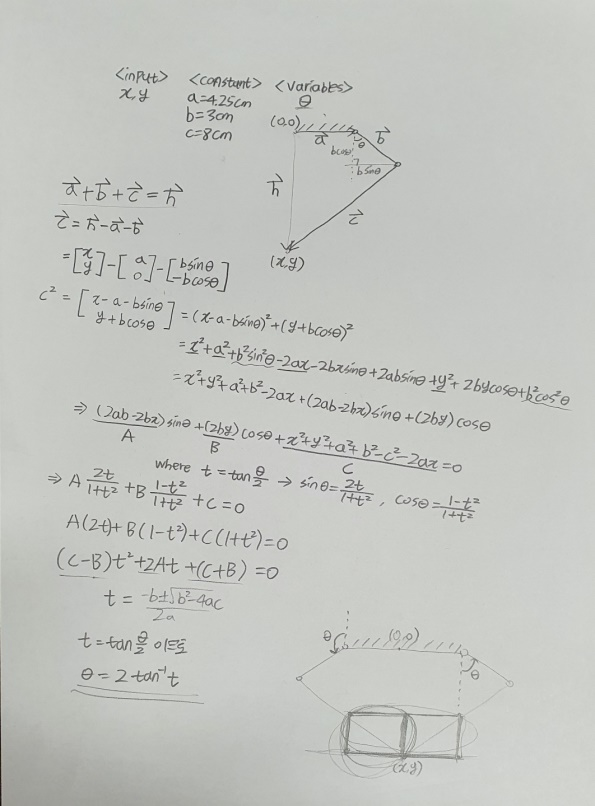 <input> <constant> <variables>
x, y a=4.25cm θ
b=3cm
c=8cm
(0,0) a⃗ b⃗ θ
bcosθ
bsinθ
h⃗ c⃗
(x,y)
a⃗+b⃗+c⃗=h⃗
c⃗=h⃗-a⃗-b⃗
=[x y]-[a 0]-[bsinθ -bcosθ]
c²=[x-a-bsinθ y+bcosθ]=(x-a-bsinθ)²+(y+bcosθ)²
=x²+a²+b²sin²θ-2ax-2bxsinθ+2absinθ+y²+2bycosθ+b²cos²θ
=x²+y²+a²+b²-2ax+(2ab-2bx)sinθ+(2by)cosθ
⇒ (2ab-2bx)sinθ+(2by)cosθ+x²+y²+a²+b²-c²-2ax=0
A B C
where t=tan θ/2 → sinθ=2t/(1+t²), cosθ=(1-t²)/(1+t²)
⇒ A 2t/(1+t²) +B (1-t²)/(1+t²) +C=0
A(2t)+B(1-t²)+C(1+t²)=0
(C-B)t²+2At+(C+B)=0
t=(-b±√(b²-4ac))/2a
t=tan θ/2 이므로
θ=2tan⁻¹t
θ (0,0) θ
(x,y)